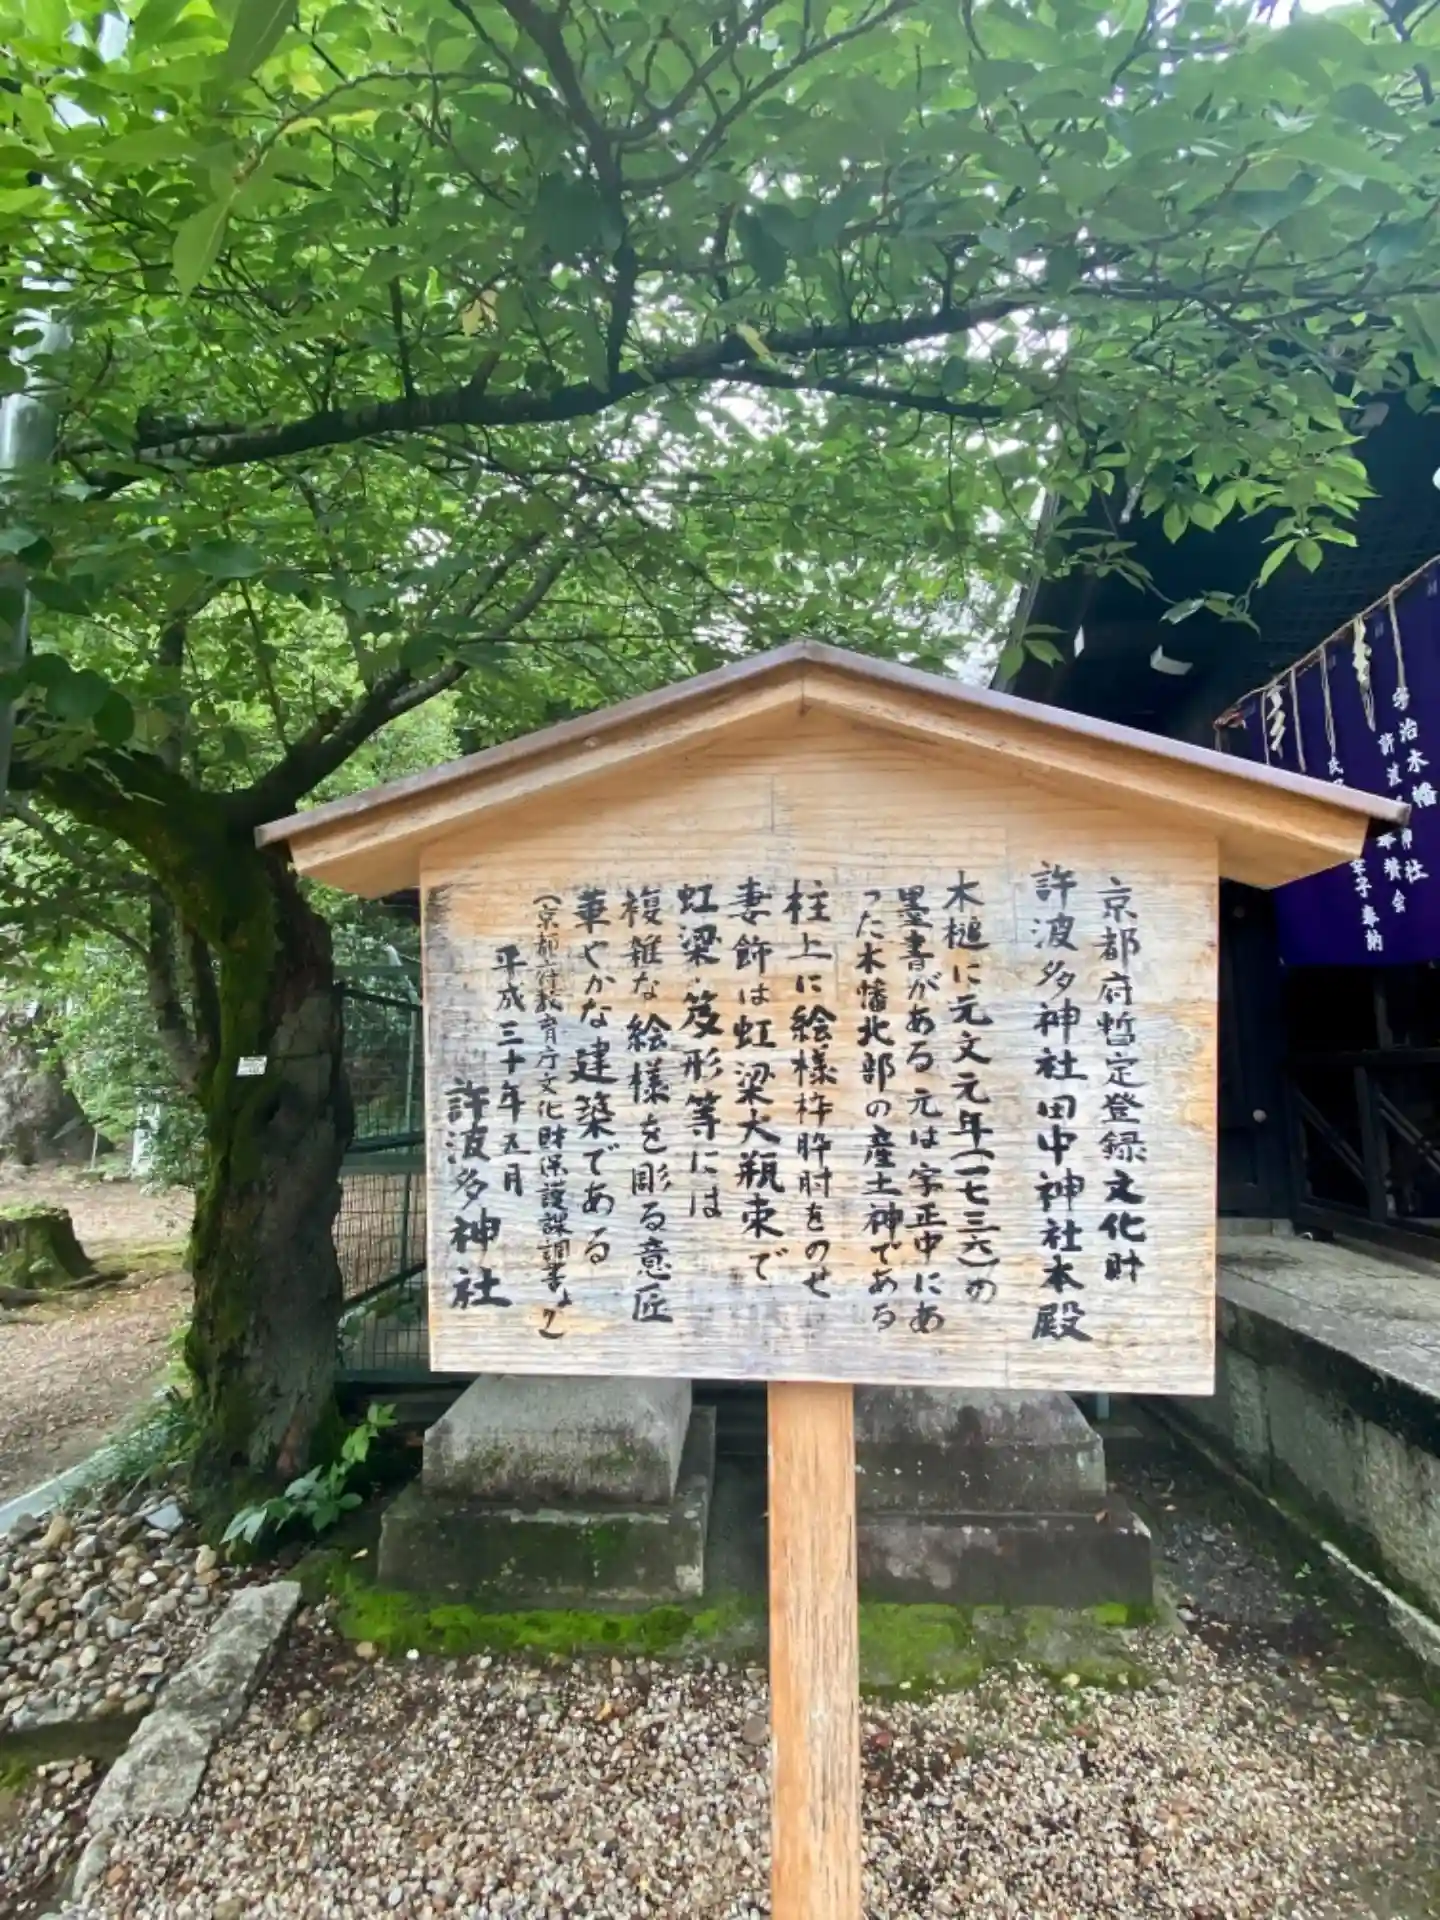 京都府暫定登録文化財
許波多神社田中神社本殿
木槌に元文元年(一七三六)の
墨書がある 元は字正中にあ
った木幡北部の産土神である
柱上に絵様枠肘をのせ
妻飾は虹梁大瓶束で
虹梁・笈形等には
複雑な絵様を彫る意匠
華やかな建築である
(京都府教育庁文化財保護課調書より)
平成三十年五月
許波多神社
宇治木幡
神社
奉賛会
幸子 奉納